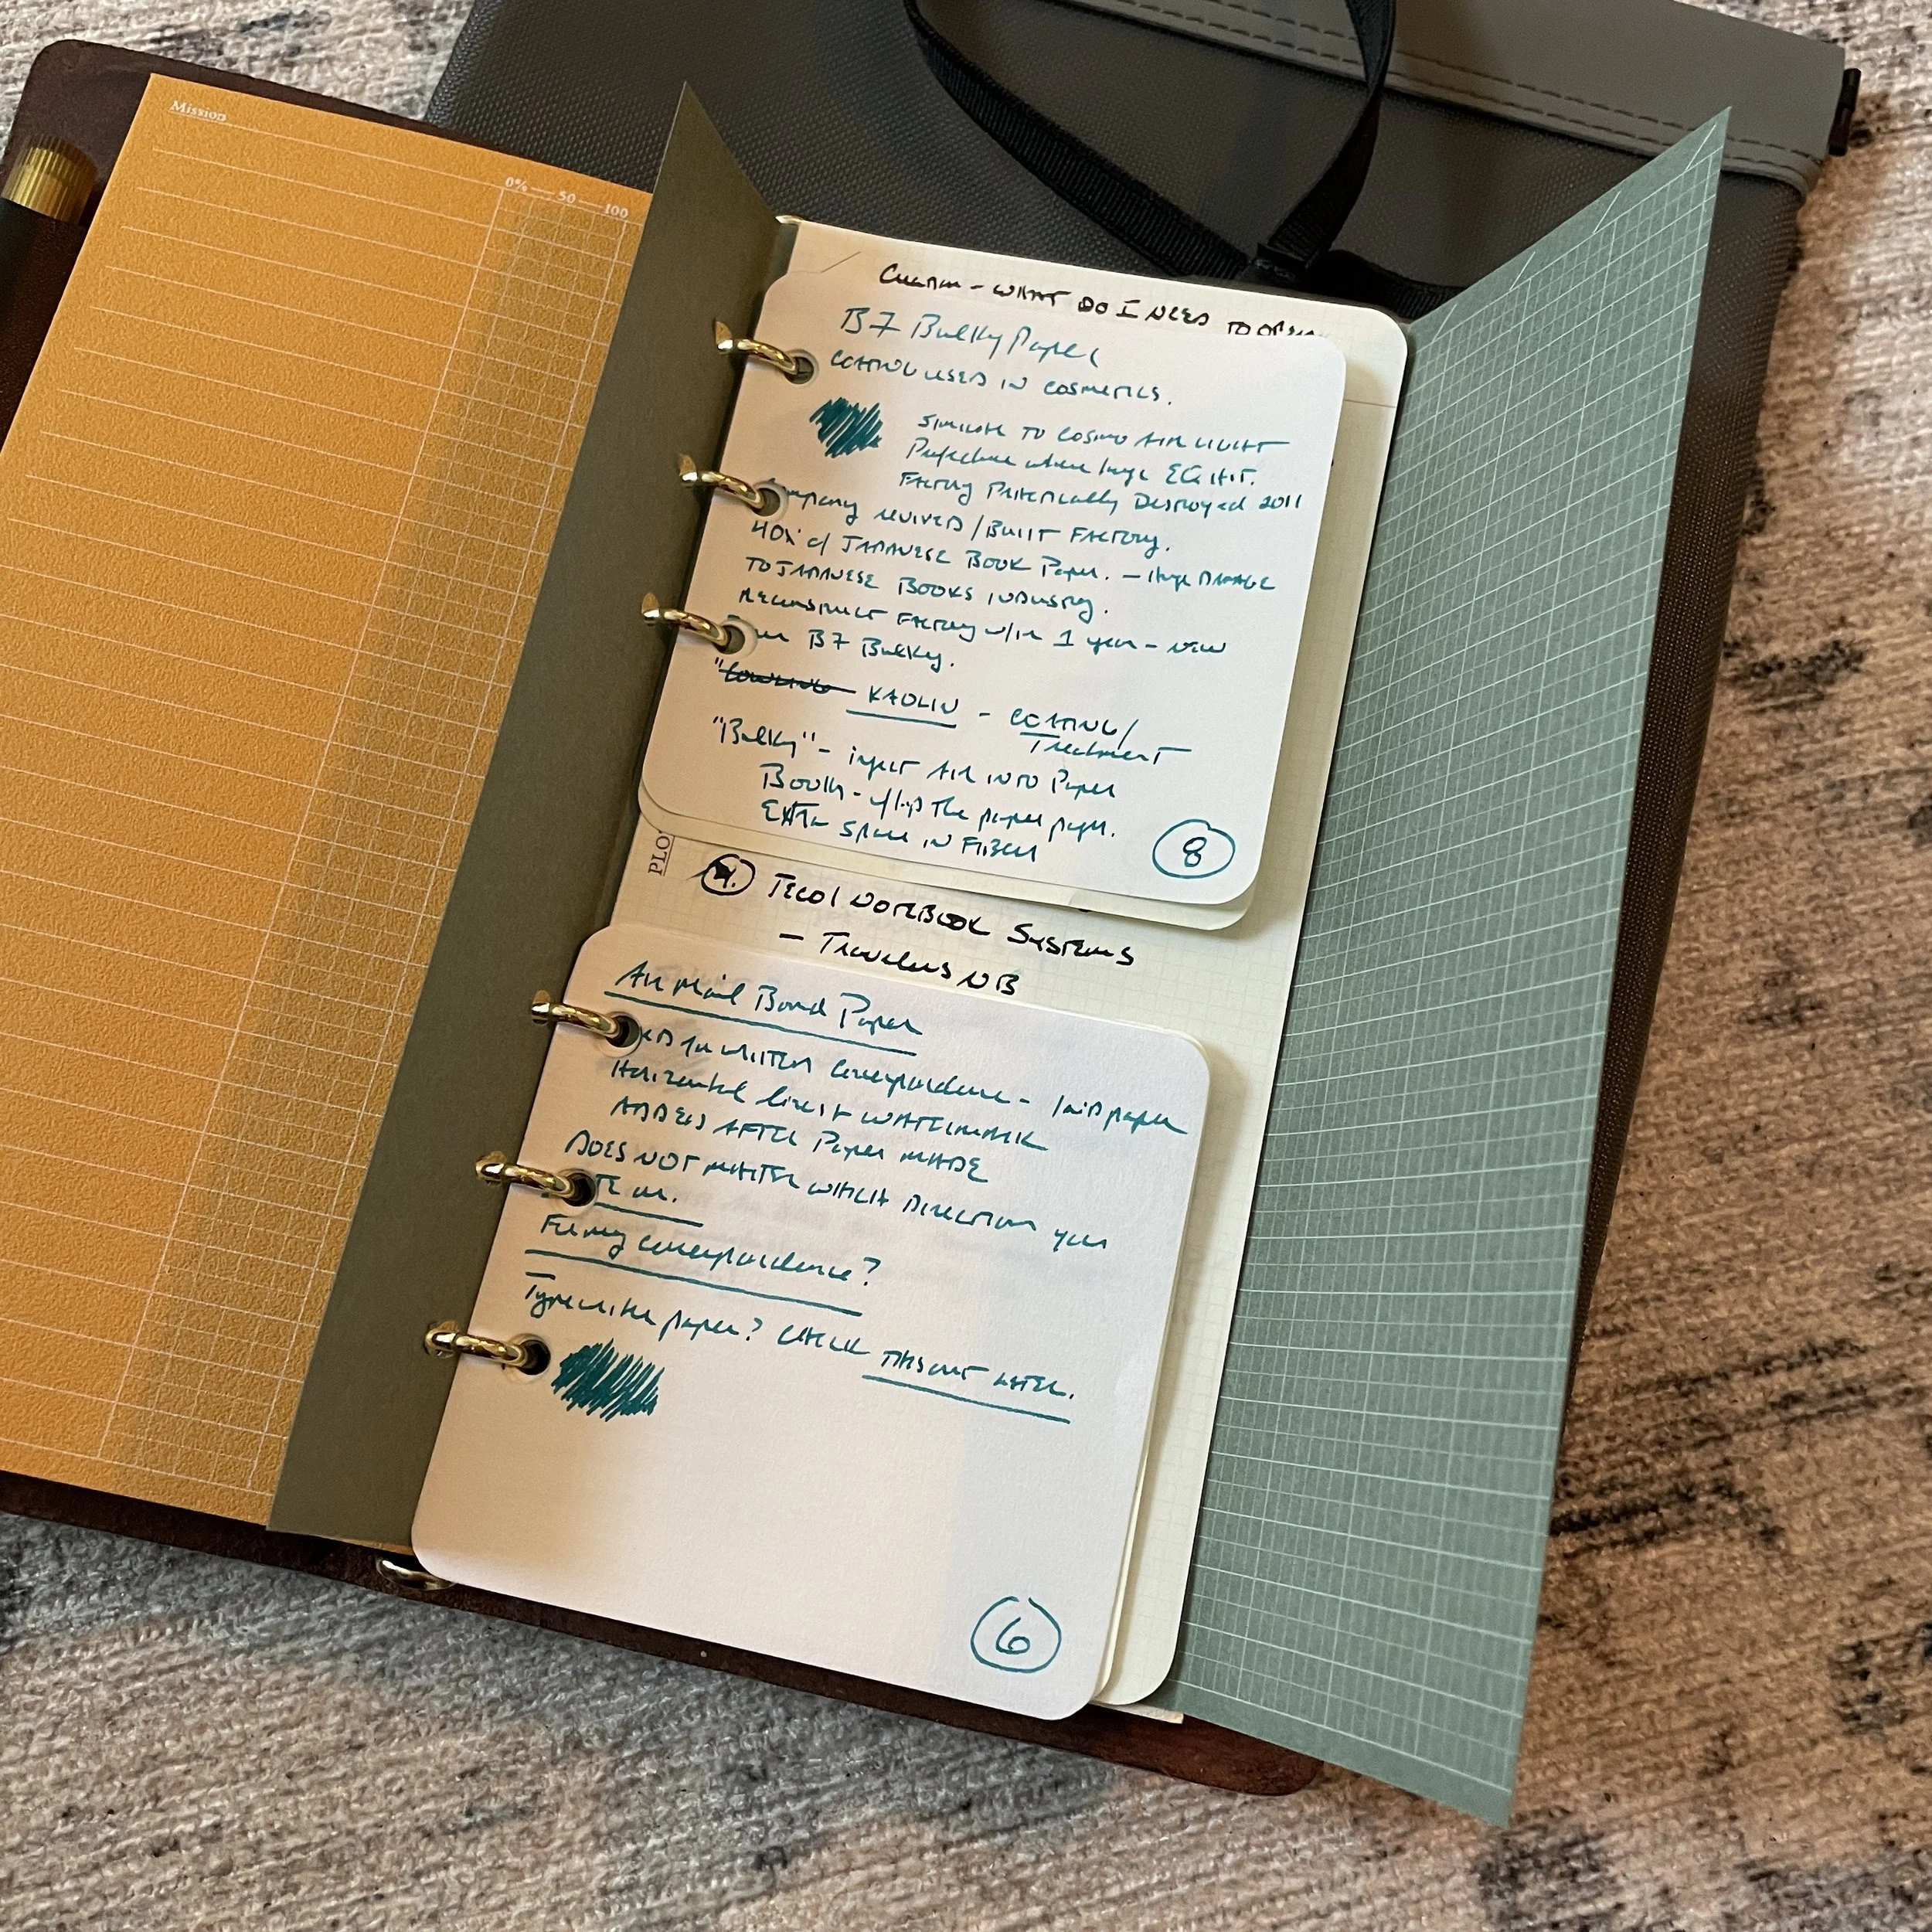 Mission
0% — 50 — 100
- WHAT DO I NEED TO
B7 Bulky Paper
COATING USED IN COSMETICS.
SIMILAR TO COSMO AIR LIGHT
Prefecture where huge EQ HIT.
Factory Practically Destroyed 2011
Company revived / Built Factory.
40% of JAPANESE BOOK Paper. - Huge DAMAGE
TO JAPANESE BOOKS industry.
Reconstruct Factory w/in 1 year - new
B7 Bulky.
KAOLIN - COATING/
Treatment
"Bulky" - inject AIR INTO Paper
the paper
EXTRA space IN FIBER
8
PLO
4. NOTEBOOK Systems
- Travelers NB
Air Mail Bond Paper
for written correspondence - laid paper
Horizontal lines + WATERMARK
ADDED AFTER Paper MADE
DOES NOT MATTER WHICH DIRECTION you
on.
For my correspondence?
Typewriter paper? CHECK THIS OUT LATER.
6